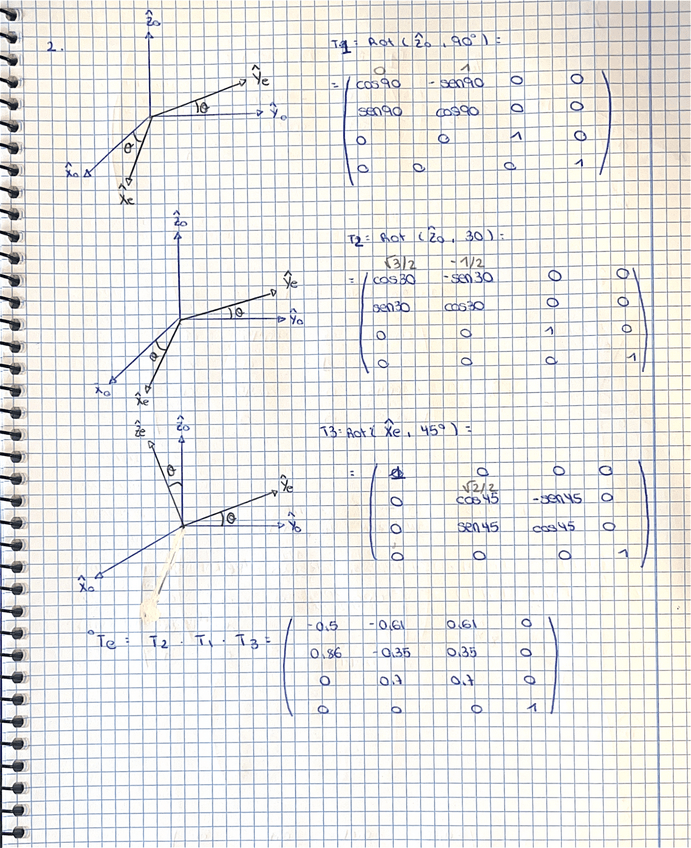 2.
ẑ₀
ŷe
θ
ŷ₀
θ
x̂₀
x̂e
T1 = Rot (ẑ₀, 90°) =
0 1
= ( cos90 -sen90 0 0
sen90 cos90 0 0
0 0 1 0
0 0 0 1 )
ẑ₀
ŷe
θ
ŷ₀
θ
x̂₀
x̂e
T2 = Rot (ẑ₀, 30) =
√3/2 -1/2
= ( cos30 -sen30 0 0
sen30 cos30 0 0
0 0 1 0
0 0 0 1 )
ẑe
ẑ₀
θ
ŷe
θ
ŷ₀
x̂₀
T3 = Rot ( x̂e, 45°) =
= ( 1 0 0 0
√2/2
0 cos45 -sen45 0
0 sen45 cos45 0
0 0 0 1 )
°Te = T2 · T1 · T3 = ( -0,5 -0,61 0,61 0
0,86 -0,35 0,35 0
0 0,7 0,7 0
0 0 0 1 )